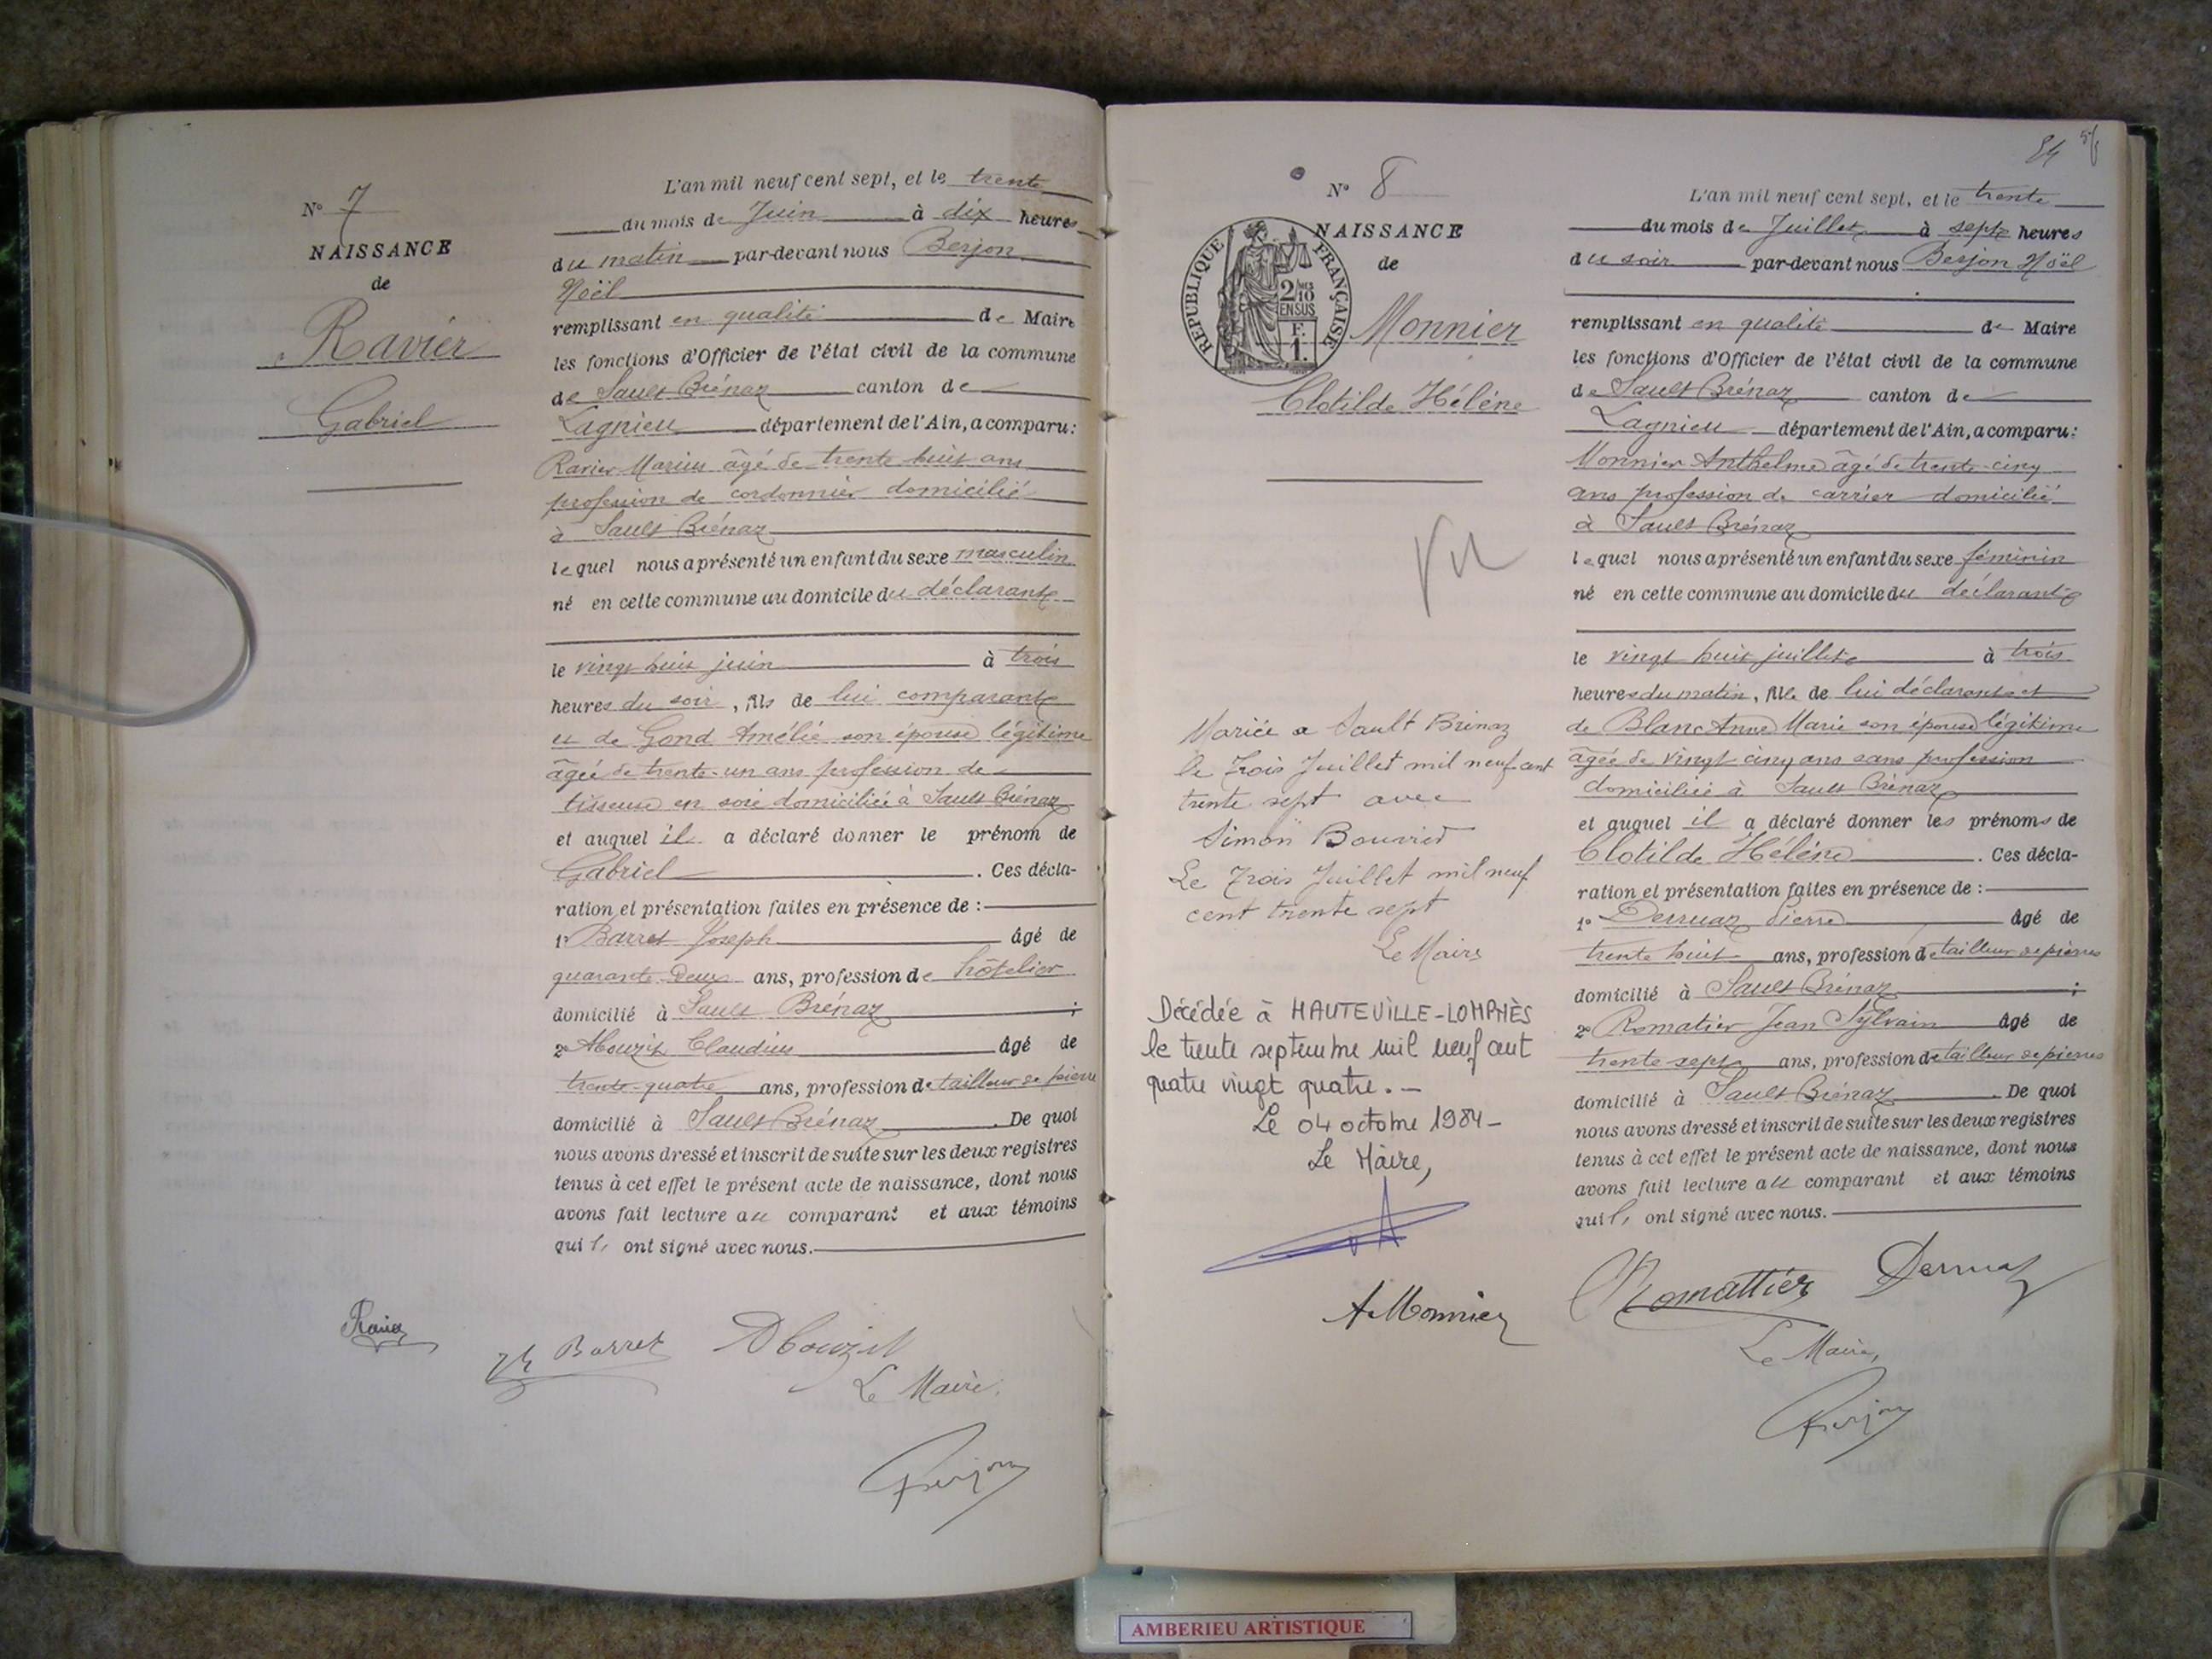 N° 7
NAISSANCE
de
Ravier
Gabriel
L'an mil neuf cent sept, et le trente
du mois de Juin à dix heures
du matin par-devant nous Berjon
Noël
remplissant en qualité de Maire
les fonctions d'Officier de l'état civil de la commune
de Sault Brénaz canton de
Lagnieu département de l'Ain, a comparu:
Ravier Marius âgé de trente huit ans
profession de cordonnier domicilié
à Sault Brénaz
lequel nous a présenté un enfant du sexe masculin
né en cette commune au domicile du déclarant
le vingt huit juin à trois
heures du soir, fils de lui comparant
et de Gond Amélie son épouse légitime
âgée de trente-un ans profession de
tisseuse en soie domiciliée à Sault Brénaz
et auquel il a déclaré donner le prénom de
Gabriel. Ces décla-
ration et présentation faites en présence de :
1° Barret Joseph âgé de
quarante-deux ans, profession de hôtelier
domicilié à Sault Brénaz ;
2° Abouzit Claudius âgé de
trente-quatre ans, profession de tailleur de pierre
domicilié à Sault Brénaz. De quoi
nous avons dressé et inscrit de suite sur les deux registres
tenus à cet effet le présent acte de naissance, dont nous
avons fait lecture au comparant et aux témoins
qui ont signé avec nous.
Ravier
Barret
Abouzit
Le Maire
Berjon
54
N° 8
NAISSANCE
de
REPUBLIQUE FRANÇAISE
2/10
EN SUS
F.
1.
Monnier
Clotilde Hélène
Vu
Mariée a Sault Brénaz
le Trois Juillet mil neuf cent
trente sept avec
Simon Bouvrid
Le Trois Juillet mil neuf
cent trente sept
Le Maire
Décédée à HAUTEVILLE-LOMPNÈS
le trente septembre mil neuf cent
quatre vingt quatre.-
Le 04 octobre 1984-
Le Maire,
A. Monnier
L'an mil neuf cent sept, et le trente
du mois de Juillet à sept heures
du soir par-devant nous Berjon Noël
remplissant en qualité de Maire
les fonctions d'Officier de l'état civil de la commune
de Sault Brénaz canton de
Lagnieu département de l'Ain, a comparu:
Monnier Anthelme âgé de trente-cinq
ans profession de carrier domicilié
à Sault Brénaz
lequel nous a présenté un enfant du sexe féminin
né en cette commune au domicile du déclarant
le vingt huit juillet à trois
heures du matin, fille de lui déclarant et
de Blanc Anne Marie son épouse légitime
âgée de vingt cinq ans sans profession
domiciliée à Sault Brénaz
et auquel il a déclaré donner les prénoms de
Clotilde Hélène. Ces décla-
ration et présentation faites en présence de :
1° Derruaz Pierre âgé de
trente huit ans, profession de tailleur de pierres
domicilié à Sault Brénaz ;
2° Romatier Jean Sylvain âgé de
trente-sept ans, profession de tailleur de pierres
domicilié à Sault Brénaz. De quoi
nous avons dressé et inscrit de suite sur les deux registres
tenus à cet effet le présent acte de naissance, dont nous
avons fait lecture au comparant et aux témoins
qui ont signé avec nous.
Romattier Derruaz
Le Maire,
Berjon
AMBERIEU ARTISTIQUE